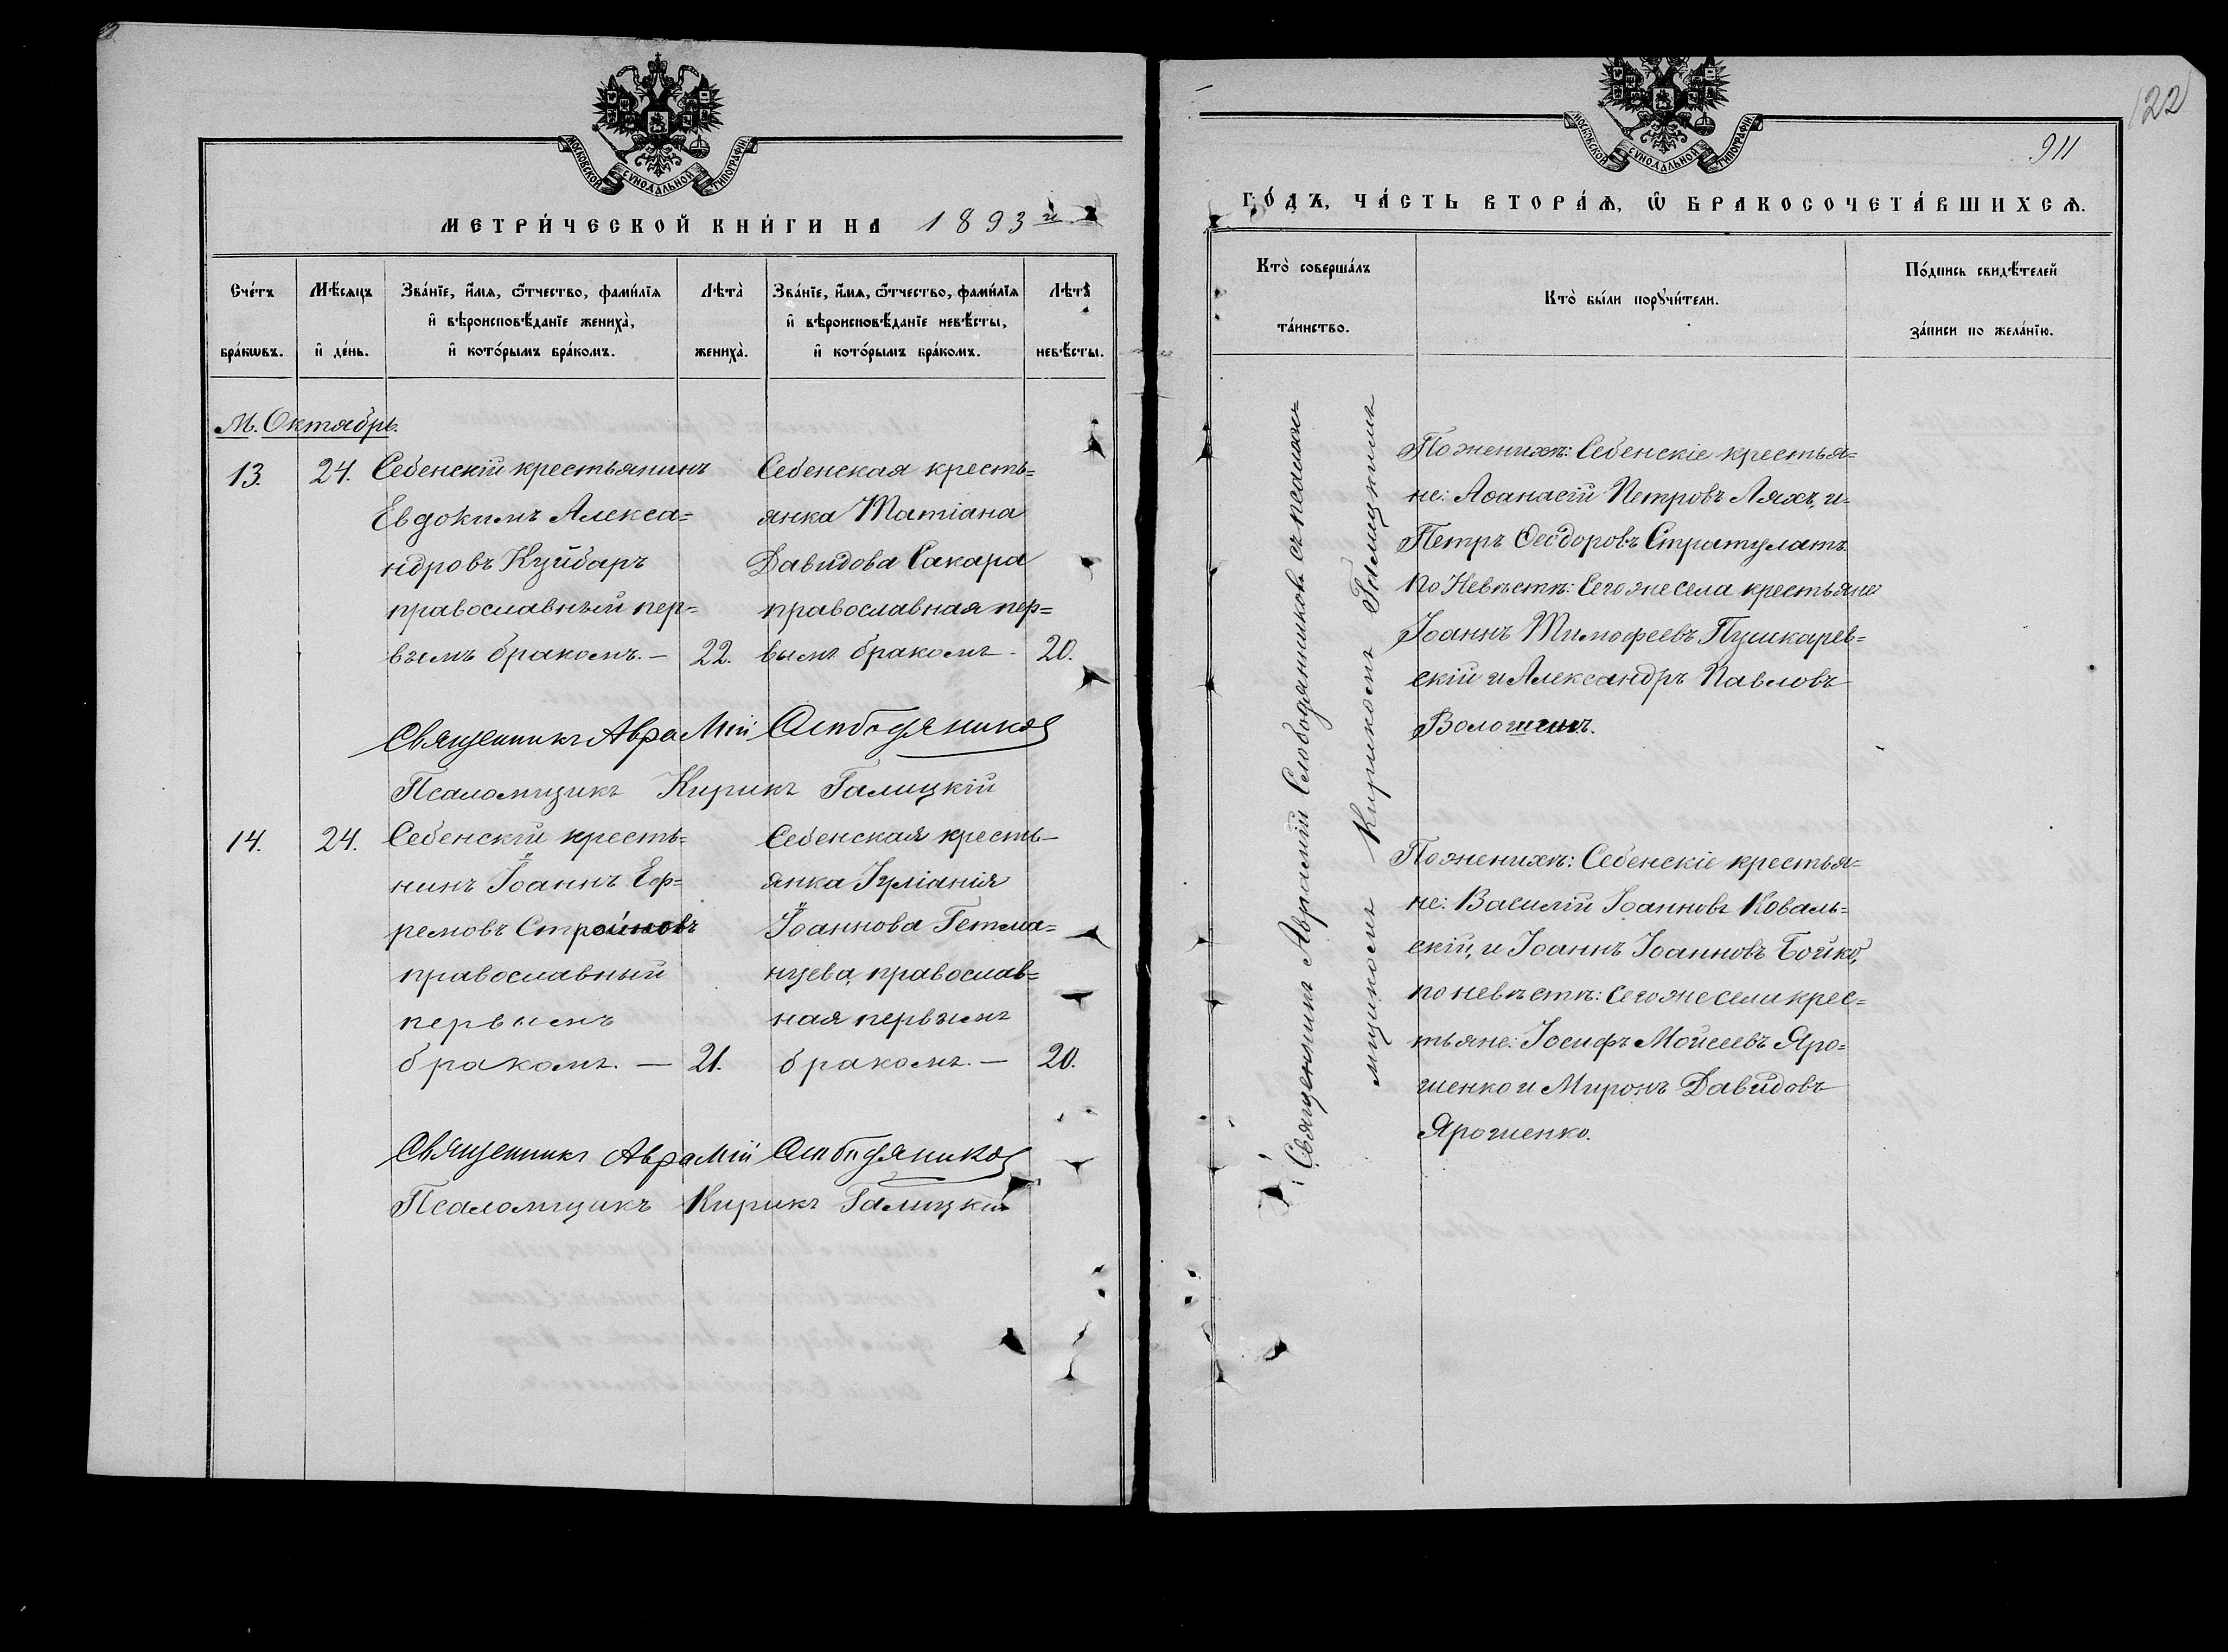 МОСКОВСКОЙ СѴНОДАЛЬНОЙ ТИПОГРАФІИ
МЕТРИ́ЧЕСКОЙ КНИ́ГИ НА 1893 й
Сче́тъ бра́кѡвъ.
Мѣ́сяцъ и҆ де́нь.
Зва́нїе, и҆́мя, ѻ҆́тчество, фами́лїя и҆ вѣроисповѣ́данїе жениха̀, и҆ кото́рымъ бра́комъ.
Лѣта̀ жениха̀.
Зва́нїе, и҆́мя, ѻ҆́тчество, фами́лїя и҆ вѣроисповѣ́данїе невѣ́сты, и҆ кото́рымъ бра́комъ.
Лѣта̀ невѣ́сты.
М. Октябрь.
13.
24.
Себенскій крестьянинъ
Евдокимъ Алекса=
ндровъ Куйбаръ
православный пер=
вымъ бракомъ. —
22.
Себенская кресть=
янка Татіана
Давидова Сакара
православная пер=
вымъ бракомъ -
20.
Священникъ Аврамій Слободяников
Псаломщикъ Кирикъ Галицкій
14.
24.
Себенскій кресть=
нинъ Іоаннъ Еф=
ремовъ Стройновъ
православный
первымъ
бракомъ. —
21.
Себенская кресть-
янка Іуліанія
Іоаннова Гетма=
нцева, православ=
ная первымъ
бракомъ. —
20.
Священникъ Аврамій Слободяников
Псаломщикъ Кирикъ Галицкій
122
МОСКОВСКОЙ СѴНОДАЛЬНОЙ ТИПОГРАФІИ
911
ГО́ДЪ, ЧА́СТЬ ВТОРА́Ѧ, Ѡ҆ БРАКОСОЧЕТА́ВШИХСѦ.
Кто̀ соверша́лъ та́инство.
Кто̀ бы́ли порꙋчи́тели.
По́дпись свидѣ́телей за́писи по жела́нїю.
Священникъ Аврамій Слободянниковъ съ псало=
мщикомъ Кирикомъ Галицкимъ
По женихѣ: Себенскіе крестья=
не: Аѳанасій Петровъ Ляхъ, и-
Петръ Ѳеодоровъ Стратулатъ
по Невѣстѣ: Сего же села крестьяне
Іоаннъ Тимофеевъ Пушкарев=
скій и Александръ Павловъ
Волошинъ.
По женихѣ: Себенскіе крестья=
не: Василій Іоанновъ Коваль=
скій, и Іоаннъ Іоанновъ Бойко,
по невѣстѣ: Сего же села крес=
тьяне: Іосифъ Мойсеевъ Яро=
шенко и Миронъ Давидовъ
Ярошенко.